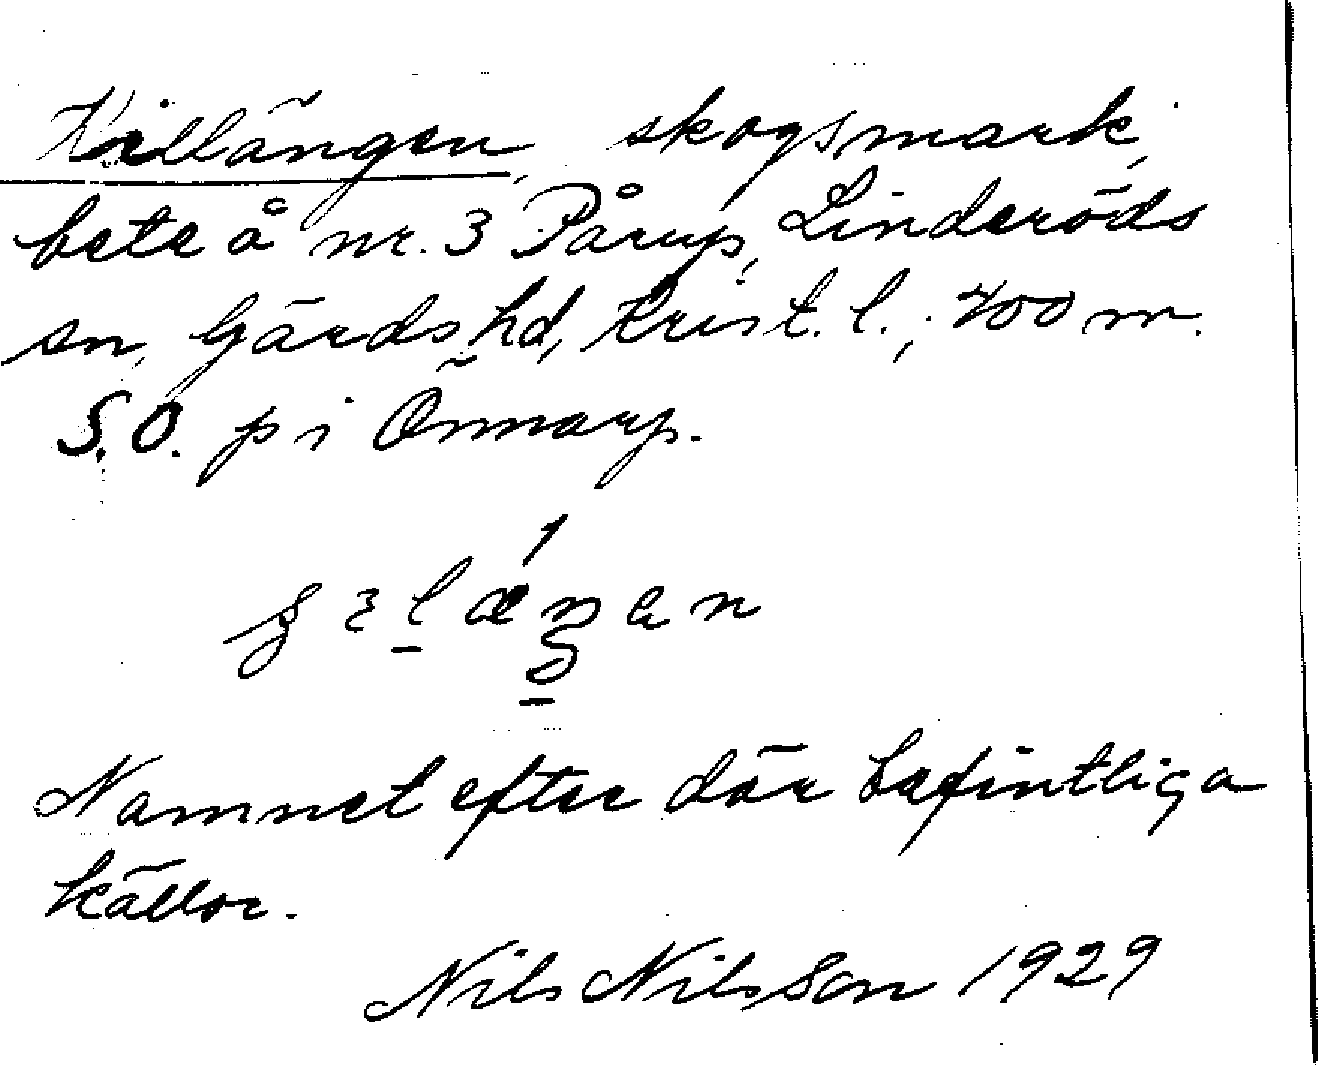 Killängen, skogsmark,
bete å nr. 3 Pårup, Linderöds
sn, Gärds hd, Krist. l., 400 m.
S.O. p i Önnarp.
Namnet efter där befintliga
källor.
Nils Nilsson 1929